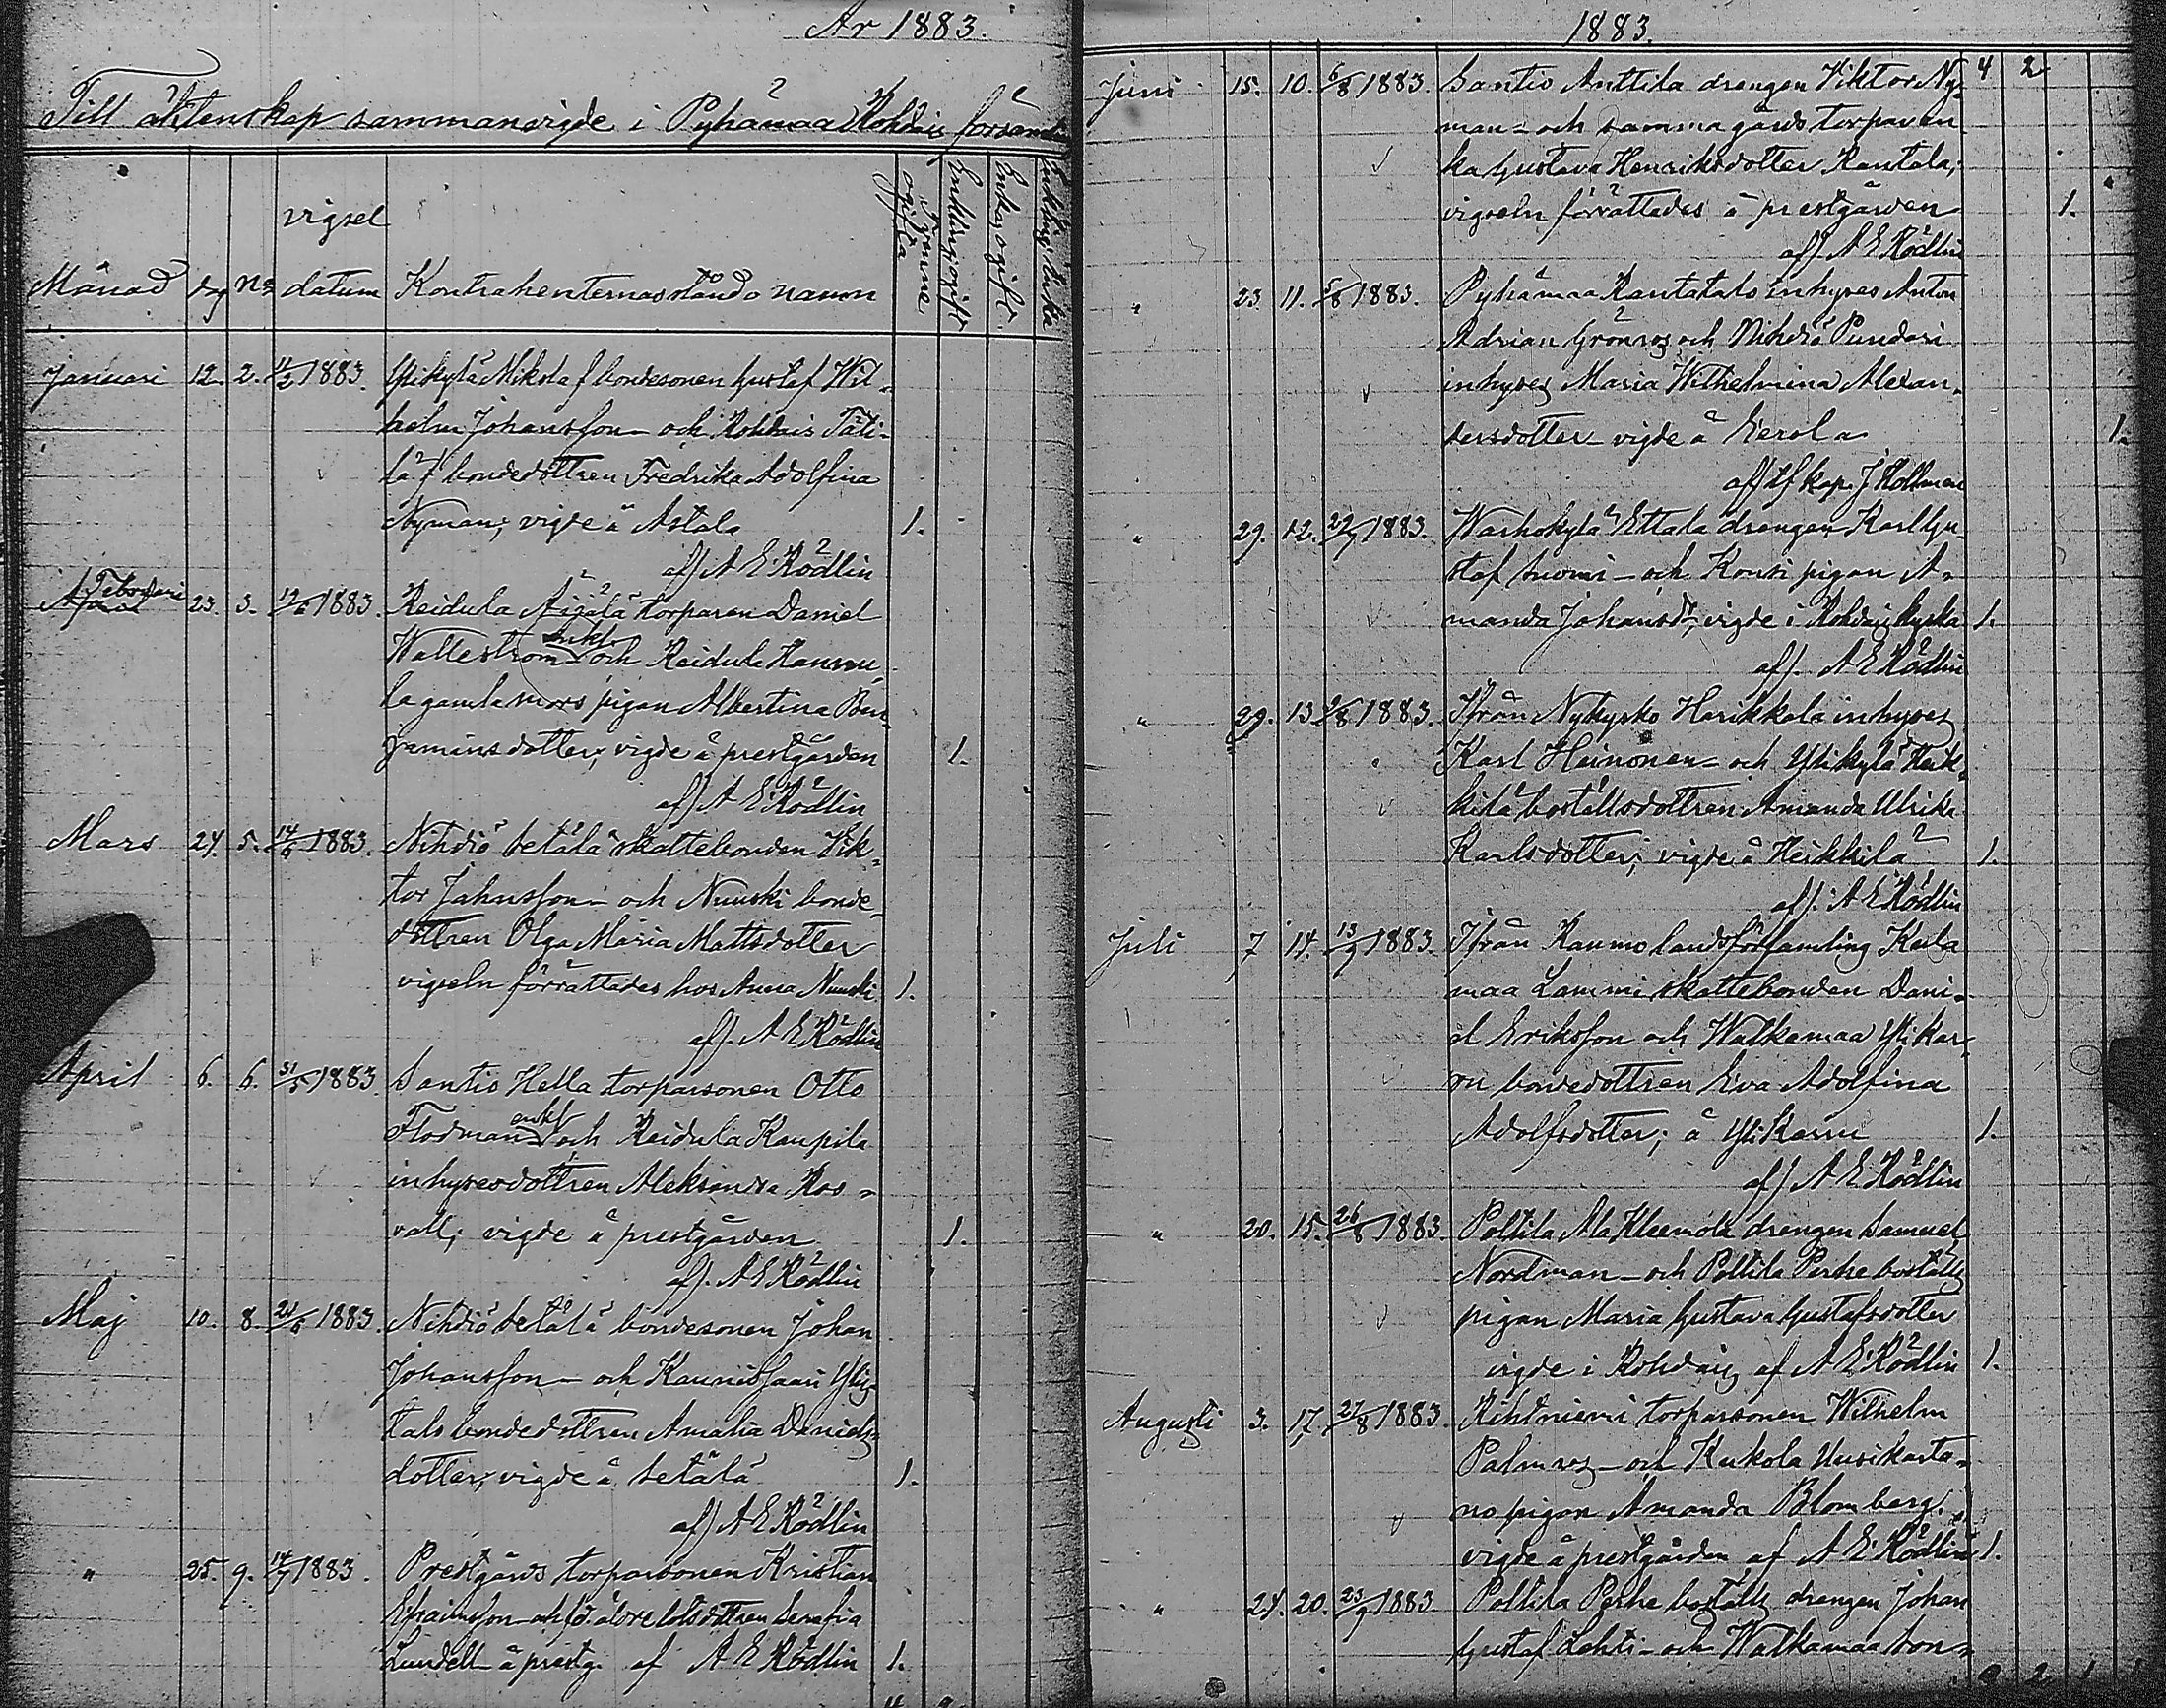 År 1883.
Till äktenskap sammanvigde i Pyhämaa Rohdais försam
Månad dag No vigsel datum Kontrahenternas stånd o namn
Tvenne ogifta
Enkling, ogift
Enka, ogift
Enkling, Enka
Januari 12. 2. 11/2 1883. Ylikylä Mikola f bondesonen Gustaf Wil-
helm Johansson - och Rohdais Täti-
lä f bondedottren Fredrika Adolfina
Nyman; vigde å Astala 1.
af) A E Rödlin
Februari 23. 3. 1883. Reidula torparen Daniel
Wallestrom enkl och Reidula Hannu
la gamla mors pigan Albertina Ben
jaminsdotter; vigde å prestgården 1.
af) A E Rödlin
Mars 24. 5. 14/4 1883. Nihdiö Setälä skattebonden Vik-
tor Johansson - och Nuuski bonde-
dottren Olga Maria Mattsdotter
vigseln förrättades hos Anna Nuuski 1.
af). A E Rödlin
April 6. 6. 31/5 1883. Santio Hella torparsonen Otto
Flodman enkl och Reidula Kaupila
inhysesdottren Aleksandra Ros-
vall; vigde å prestgården 1.
af). A E Rödlin
Maj 10. 8. 24/6 1883. Nihdiö Setälä bondesonen Johan
Johansson - och Kaunissaari Yli
talo bondedottren Amalia Daniels
dotter; vigde å Setälä 1.
af) A E Rödlin
" 25. 9. 14/7 1883. Prestgårds torparsonen Kristian
Efraimsson och lotsdottren Serafia
Lundell å prestg. af A E Rödlin 1.
1883.
4 2
Juni 15. 10. 6/8 1883. Santio Anttila drengen Viktor Ny-
man - och samma gårds torparen
ka Gustava Henriksdotter Rantala;
vigseln förrättades å prestgården 1.
af). A E Rödlin
" 23. 11. 5/8 1883. Pyhämaa Rantatalo inhyses Anton
Adrian Grönros och Nihdiö Pundari
inhyses Maria Wilhelmina Alexan-
dersdotter vigde å Eerola 1.
af) kap. J Hollmen
" 29. 12. 29/7 1883. Warhokylä Ettala drengen Karl Gu
staf Suomi - och Konsi pigan A-
manda Johansdr, vigde i Rohdais kyrka 1.
af). A E Rödlin
" 29. 13 2/8 1883. Ifrån Nykyrko Harikkala inhyses
Karl Heinonen - och Ylikylä Heik-
kilä boställsdottren Amanda Ulrika
Karlsdotter; vigde å Heikkilä 1.
af). A E Rödlin
Juli 7 14. 13/9 1883. Ifrån Raumo landsförsamling Kola
maa Lammi skattebonden Dani-
el Eriksson och Walkamaa Ylikar
ru bondedottren Eva Adolfina
Adolfsdotter; å Ylikarru 1.
af) A E Rödlin
" 20. 15. 26/8 1883. Polttila Ala Kleemola drengen Samuel
Nordman - och Polttila Perhe boställs
pigan Maria Gustava Gustafsdotter
vigde i Rohdais af A E Rödlin 1.
Augusti 3. 17. 27/8 1883. Rihtniemi torparsonen Wilhelm
Palmros - och Kukola Uusikarta-
no pigan Amanda Blomberg.
vigde å prestgården af A E Rödlin 1.
" 24. 20. 23/9 1883 Polttila Perhe boställs drengen Johan
Gustaf Lehti - och Walkamaa Son-